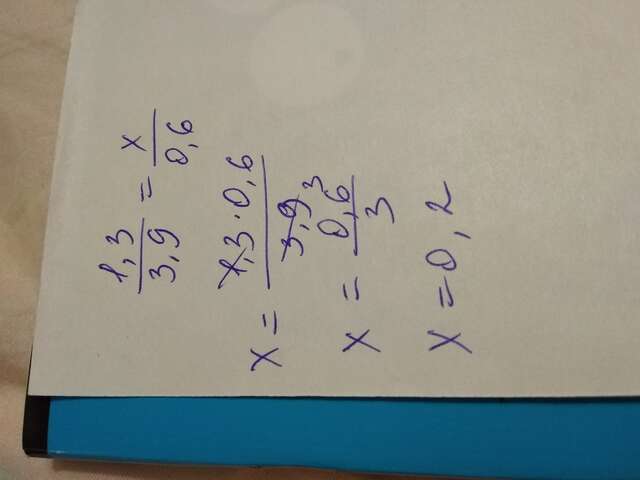 1,3/3,9 = x/0,6
x = 1,3·0,6/3,9 3
x = 0,6/3
x = 0,2